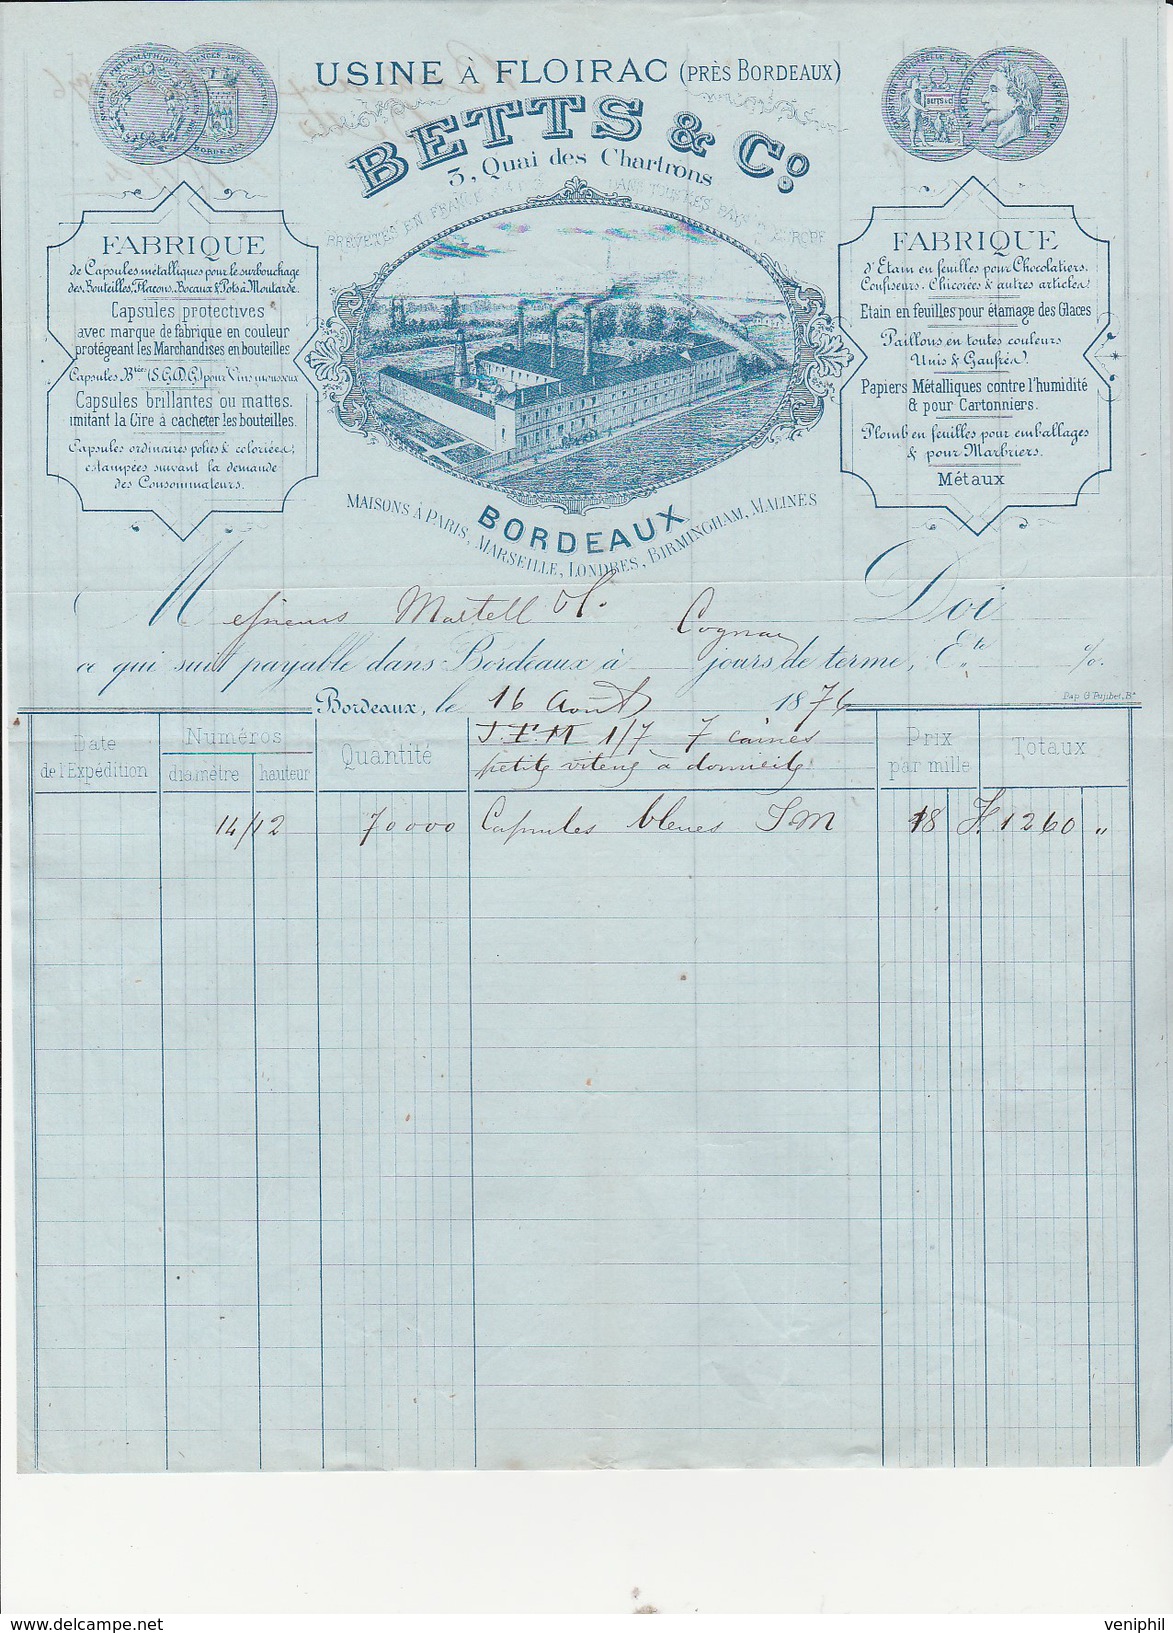 USINE À FLOIRAC (PRÈS BORDEAUX)
BETTS & Cº
3, Quai des Chartrons
BREVETÉS EN FRANCE DANS TOUS LES PAYS D'EUROPE
FABRIQUE
de Capsules métalliques pour le surbouchage
des Bouteilles, Flacons, Bocaux & Pots à Moutarde.
Capsules protectives
avec marque de fabrique en couleur
protégeant les Marchandises en bouteilles
Capsules Btées (S.G.D.G) pour Vins mousseux
Capsules brillantes ou mattes.
imitant la Cire à cacheter les bouteilles.
Capsules ordinaires polies & coloriées,
estampées suivant la demande
des Consommateurs.
FABRIQUE
d'Etain en feuilles pour Chocolatiers.
Confiseurs. Chicorées & autres articles.
Etain en feuilles pour étamage des Glaces
Paillons en toutes couleurs
Unis & Gaufrés.
Papiers Métalliques contre l'humidité
& pour Cartonniers.
Plomb en feuilles pour emballages
& pour Marbriers.
Métaux
BORDEAUX
MAISONS À PARIS, MARSEILLE, LONDRES, BIRMINGHAM, MALINES
Messieurs Martell & C. Cognac Doi
ce qui suit payable dans Bordeaux à jours de terme, Ete %.
Bordeaux, le 16 Août 1876
Pap. G. Pujibet, Bx
Date de l'Expédition
Numéros
diamètre hauteur
Quantité
J.F.M 1/7 7 caisses
petite vitesse à domicile
Prix par mille
Totaux
14/12 70000 Capsules bleues J.M 18 F. 1260 "
veniphil
www.delcampe.net